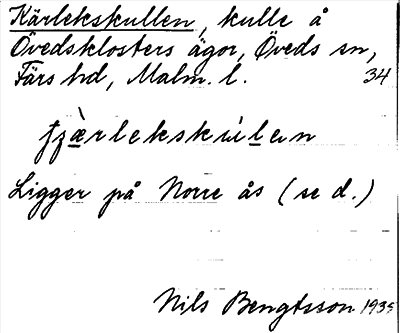 Kärlekskullen, kulle å
Övedsklosters ägor, Öveds sn,
Färs hd, Malm. l. 34
Ligger på Norre ås (se d.)
Nils Bengtsson 1935